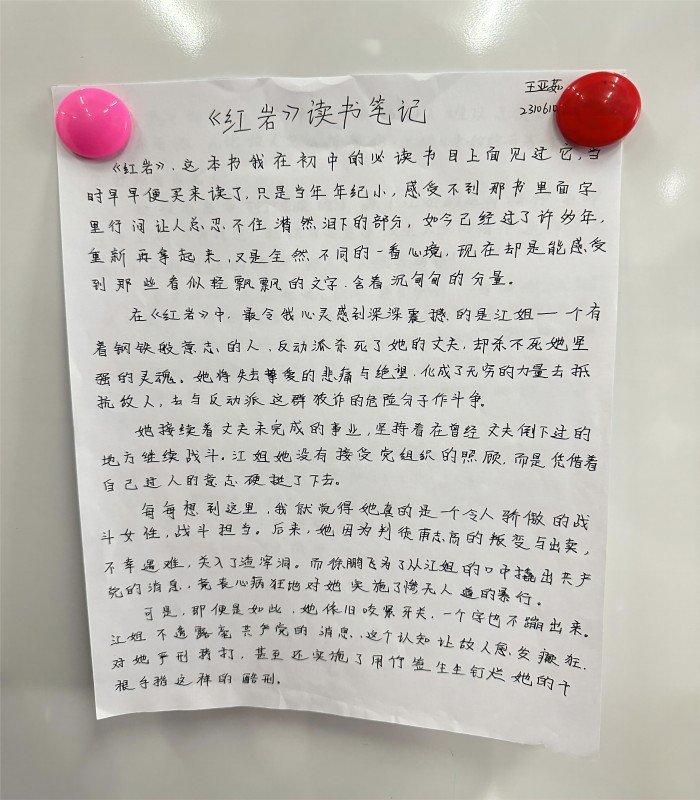 王亚茹
231061
《红岩》读书笔记
《红岩》，这本书我在初中的必读书目上面见过它，当
时早早便买来读了，只是当年年纪小，感受不到那书里面字
里行间让人总忍不住潸然泪下的部分，如今已经过了许多年，
重新再拿起来，又是全然不同的一番心境，现在却是能感受
到那些看似轻飘飘的文字，含着沉甸甸的分量。
在《红岩》中，最令我心灵感到深深震撼的是江姐—一个有
着钢铁般意志的人，反动派杀死了她的丈夫，却杀不死她坚
强的灵魂。她将失去挚爱的悲痛与绝望，化成了无穷的力量去抵
抗敌人，去与反动派这群狡诈的危险分子作斗争。
她接续着丈夫未完成的事业，坚持着在曾经丈夫倒下过的
地方继续战斗。江姐她没有接受党组织的照顾，而是凭借着
自己过人的意志硬挺了下去。
每每想到这里，我就觉得她真的是一个令人骄傲的战
斗女性，战斗担当。后来，她因为判徒甫志高的叛变与出卖，
不幸遇难，关入了渣宰洞。而徐鹏飞为了从江姐的口中撬出共产
党的消息，竟丧心病狂地对她实施了惨无人道的暴行。
可是，即便是如此，她依旧咬紧牙关，一个字也不蹦出来。
江姐不透露毫共产党的消息，这个认知让敌人愈发癫狂，
对她严刑拷打，甚至还实施了用竹签生生钉烂她的十
根手指这样的酷刑。